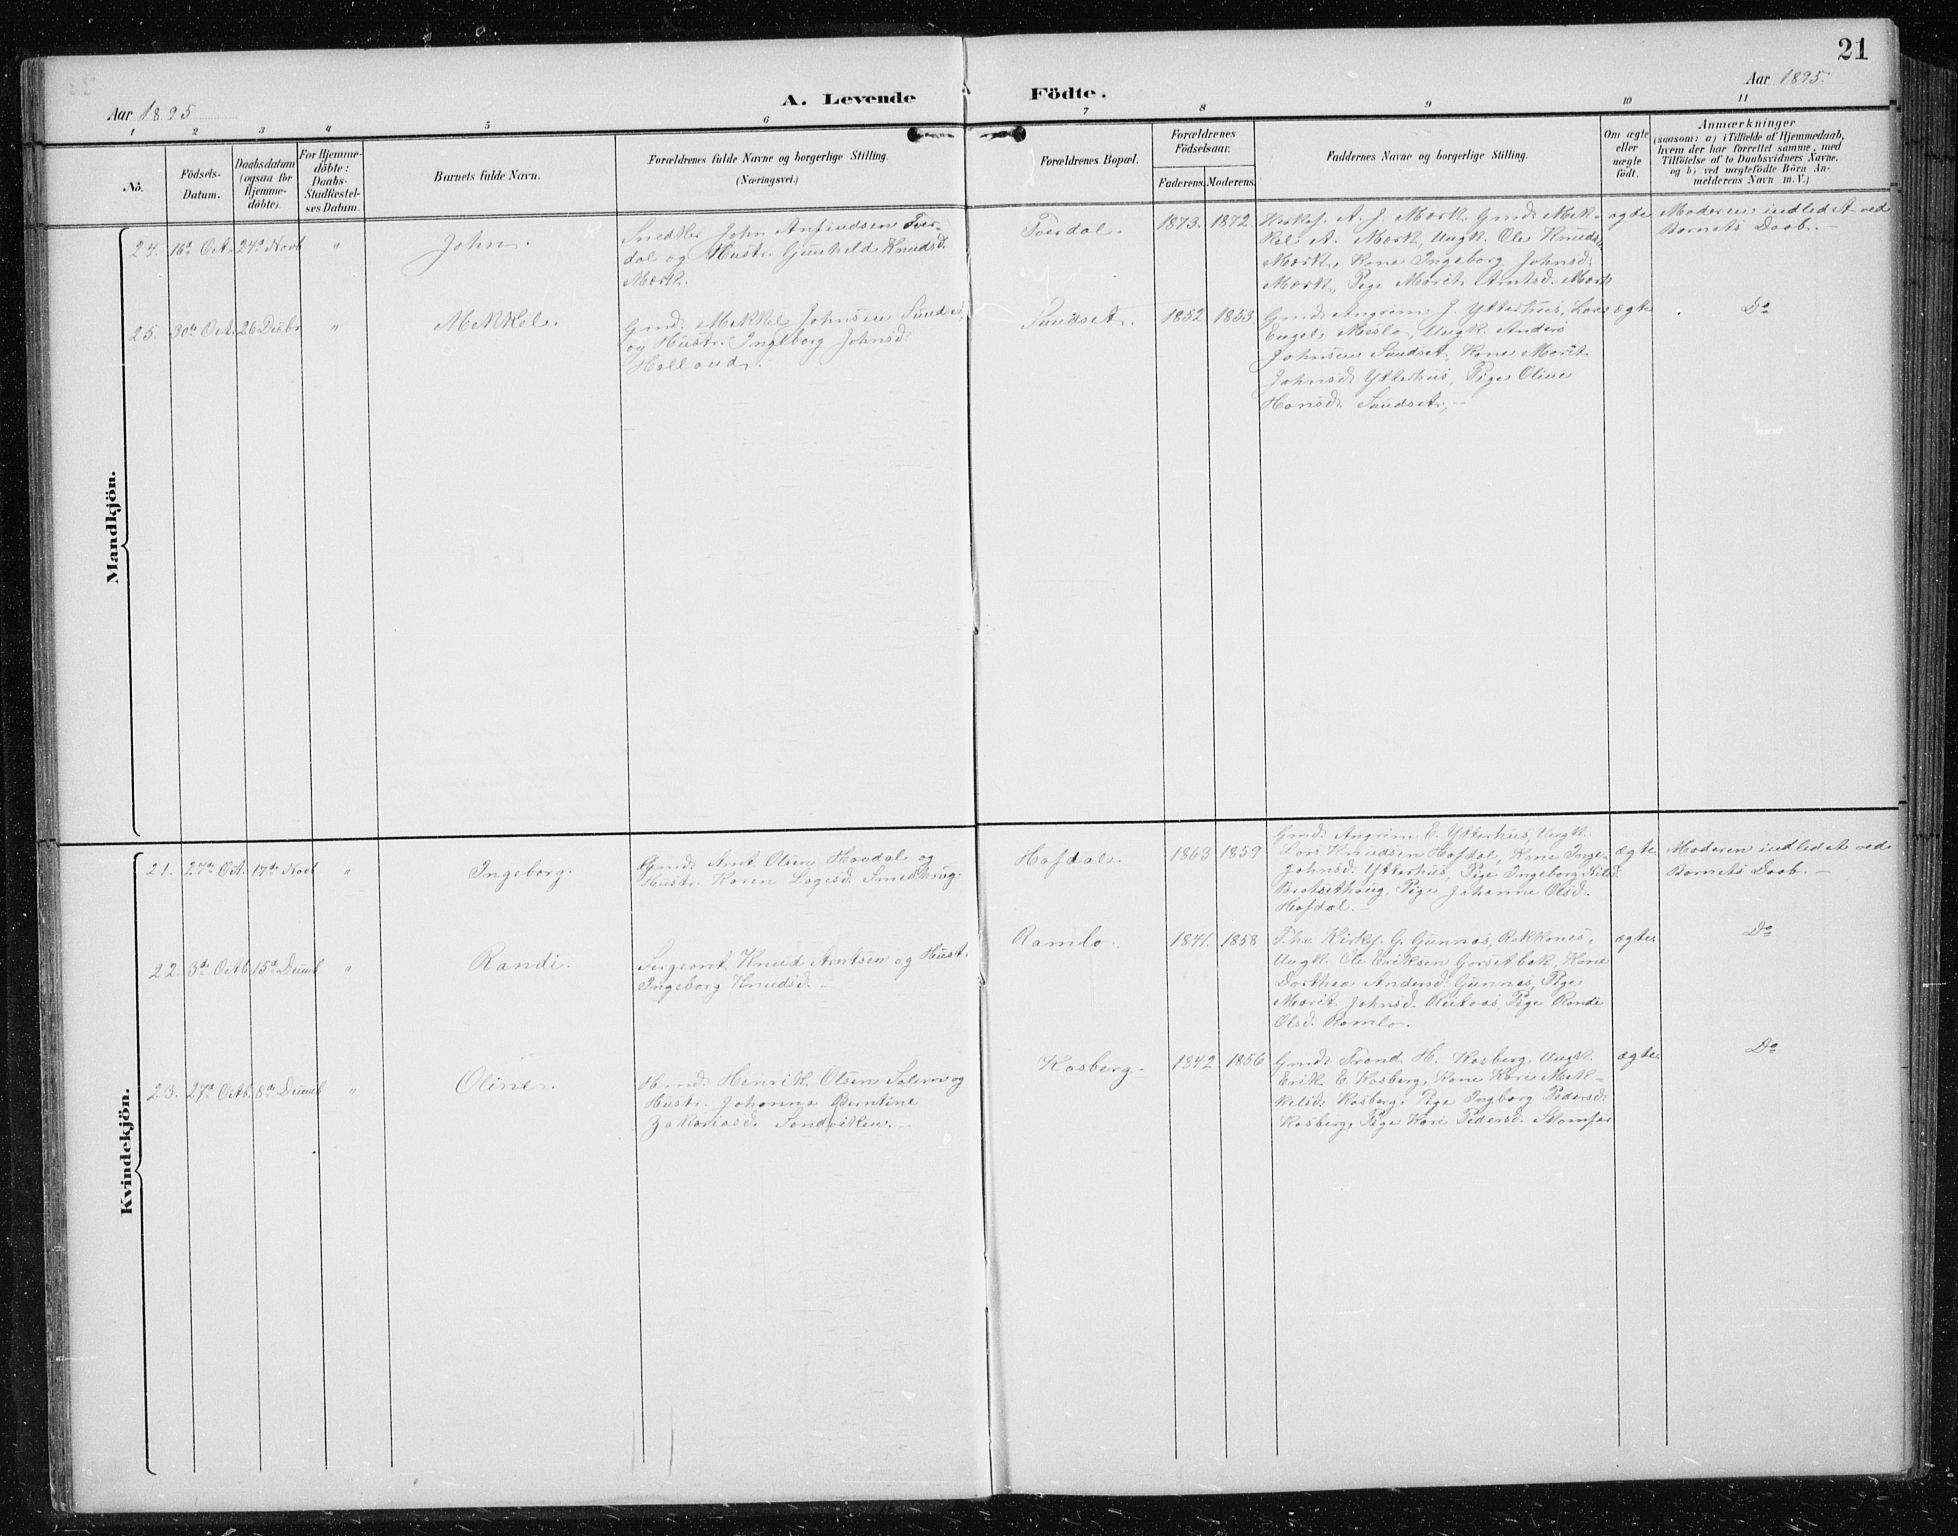 21
Aar 1895
A. Levende Födte.
Aar 1895.
1 2 3 4 5 6 7 8 9 10 11
No.
Födsels-
Datum.
Daabsdatum
(ogsaa for
Hjemme-
döbte).
For Hjemme-
döbte:
Daabs-
Stadfæstel-
ses Datum.
Barnets fulde Navn.
Forældrenes fulde Navne og borgerlige Stilling.
(Næringsvei.)
Forældrenes Bopæl.
Forældrenes
Födselsaar.
Faderens. Moderens.
Faddernes Navne og borgerlige Stilling.
Om ægte
eller
uægte
födt.
Anmærkninger
(saasom: a) i Tilfælde af Hjemmedaab,
hvem der har forrettet samme, med
Tilföielse af to Daabsvidners Navne,
og b) ved uægtefödte Börn An-
melderens Navn m. V.)
Mandkjön.
24. 16de Oct. 24de Novb " John.
Snedker John Anfindsen Tver-
dal og Hustr. Gunhild Knudsd.
Mærk.
Tverdal. 1873. 1872.
Kirkes. A. J. Mærk, Gmd. Mek-
kel A. Mærk, Ungk. Ole Knudsen
Mærk, Kone Ingeborg Johnsd.
Mærk, Pige Marit Arntsd. Mærk
ægte
Moderen indledet ved
Barnets Daab. —
25. 30te Oct. 26 Decbr " Mekkel.
Gmd. Mekkel Johnsen Sundset,
og Hustr. Ingeborg Johnsd.
Holland.
Sundset. 1852 1853
Gmd. Angrim J. Ytterhus, Lars
Engel Meslo, Ungk. Anders
Johnsen Sundset, Kone Marit
Johnsd. Ytterhus, Pige Oline
Hansd. Sundset. —
ægte
Do
Kvindekjön.
21. 27de Oct. 17de Novb " Ingeborg.
Gmd. Arnt Olsen Havdal og
Hustr. Karen Lagesd. Smedhaug.
Hafdal. 1863 1859
Gmd. Angrim E. Ytterhus, Ungk.
Lars Knudsen Hafdal, Kone Inge-
Johnsd. Ytterhus, Pige Ingeborg
Pige Johanne Olsd.
Hafdal. —
ægte
Moderen indledet ved
Barnets Daab. —
22. 3d Octb. 15d Decmb " Randi.
Sergeant Knud Arntsen og Hust.
Ingeborg Knudsd. —
Ramlo. 1841. 1858
Kirkes. G. Gunnes,
Ungk. Ole Eriksen Gorsetbak, Kone
Dorthea Andersd. Gunnes, Pige
Marit Johnsd. Pige Randi
Olsd. Ramlo.
ægte
Do
23. 27de Octb. 8de Decmb " Oline.
Hmd. Henrik Olsen Solem og
Hustr. Johanna Berntine
Zakariasd. Sandviken. —
Kosberg. 1842 1856
Gmd. Trond H. Kosberg, Ungk.
Erik E. Kosberg, Kone Kari Mek-
kelsd. Kosberg, Pige Ingborg Pedersd.
Kosberg, Pige Kari Pedersd.
ægte
Do